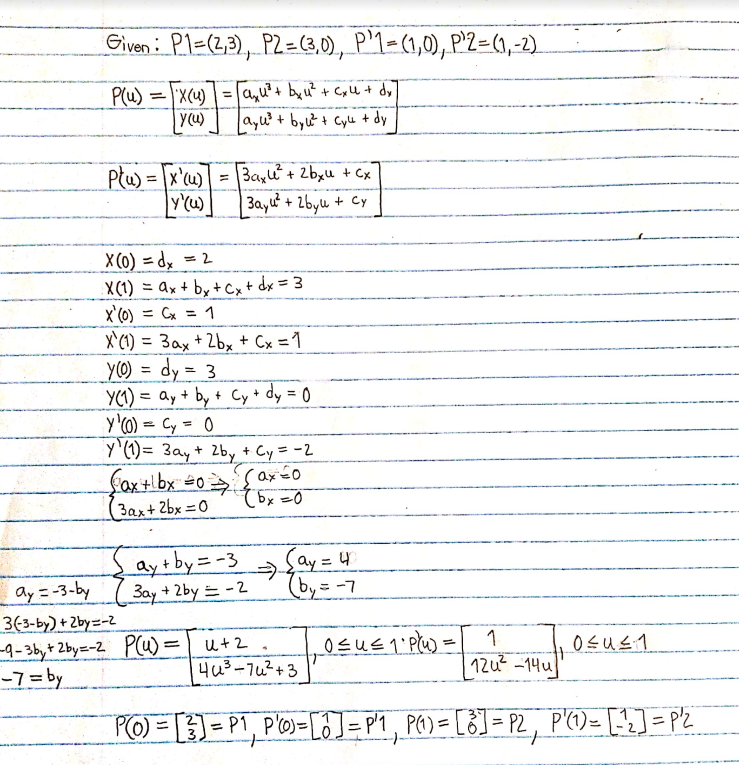 Given: P1=(2,3), P2=(3,0), P'1=(1,0), P'2=(1,-2)
P(u) = [x(u) y(u)] = [aₓu³ + bₓu² + cₓu + dₓ
a_yu³ + b_yu² + c_yu + d_y]
P'(u) = [x'(u) y'(u)] = [3aₓu² + 2bₓu + cₓ
3a_yu² + 2b_yu + c_y]
x(0) = dₓ = 2
x(1) = aₓ + bₓ + cₓ + dₓ = 3
x'(0) = cₓ = 1
x'(1) = 3aₓ + 2bₓ + cₓ = 1
y(0) = d_y = 3
y(1) = a_y + b_y + c_y + d_y = 0
y'(0) = c_y = 0
y'(1) = 3a_y + 2b_y + c_y = -2
{ax + bx = 0 ⇒ {ax = 0
{3ax + 2bx = 0 {bx = 0
{ a_y + b_y = -3 ⇒ {a_y = 4
{ 3a_y + 2b_y = -2 {b_y = -7
a_y = -3-b_y
3(-3-b_y) + 2b_y = -2
-9-3b_y + 2b_y = -2
-7 = b_y
P(u) = [u+2
4u³-7u²+3], 0≤u≤1 · P'(u) = [1
12u²-14u], 0≤u≤1
P(0) = [2 3] = P1, P'(0) = [1 0] = P'1, P(1) = [3 0] = P2, P'(1) = [1 -2] = P'2